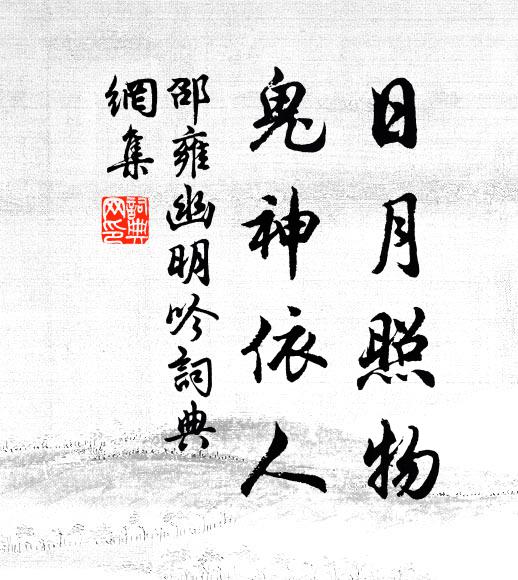 日月照物
鬼神依人
邵雍幽明吟詞典
網集
詞典
网印